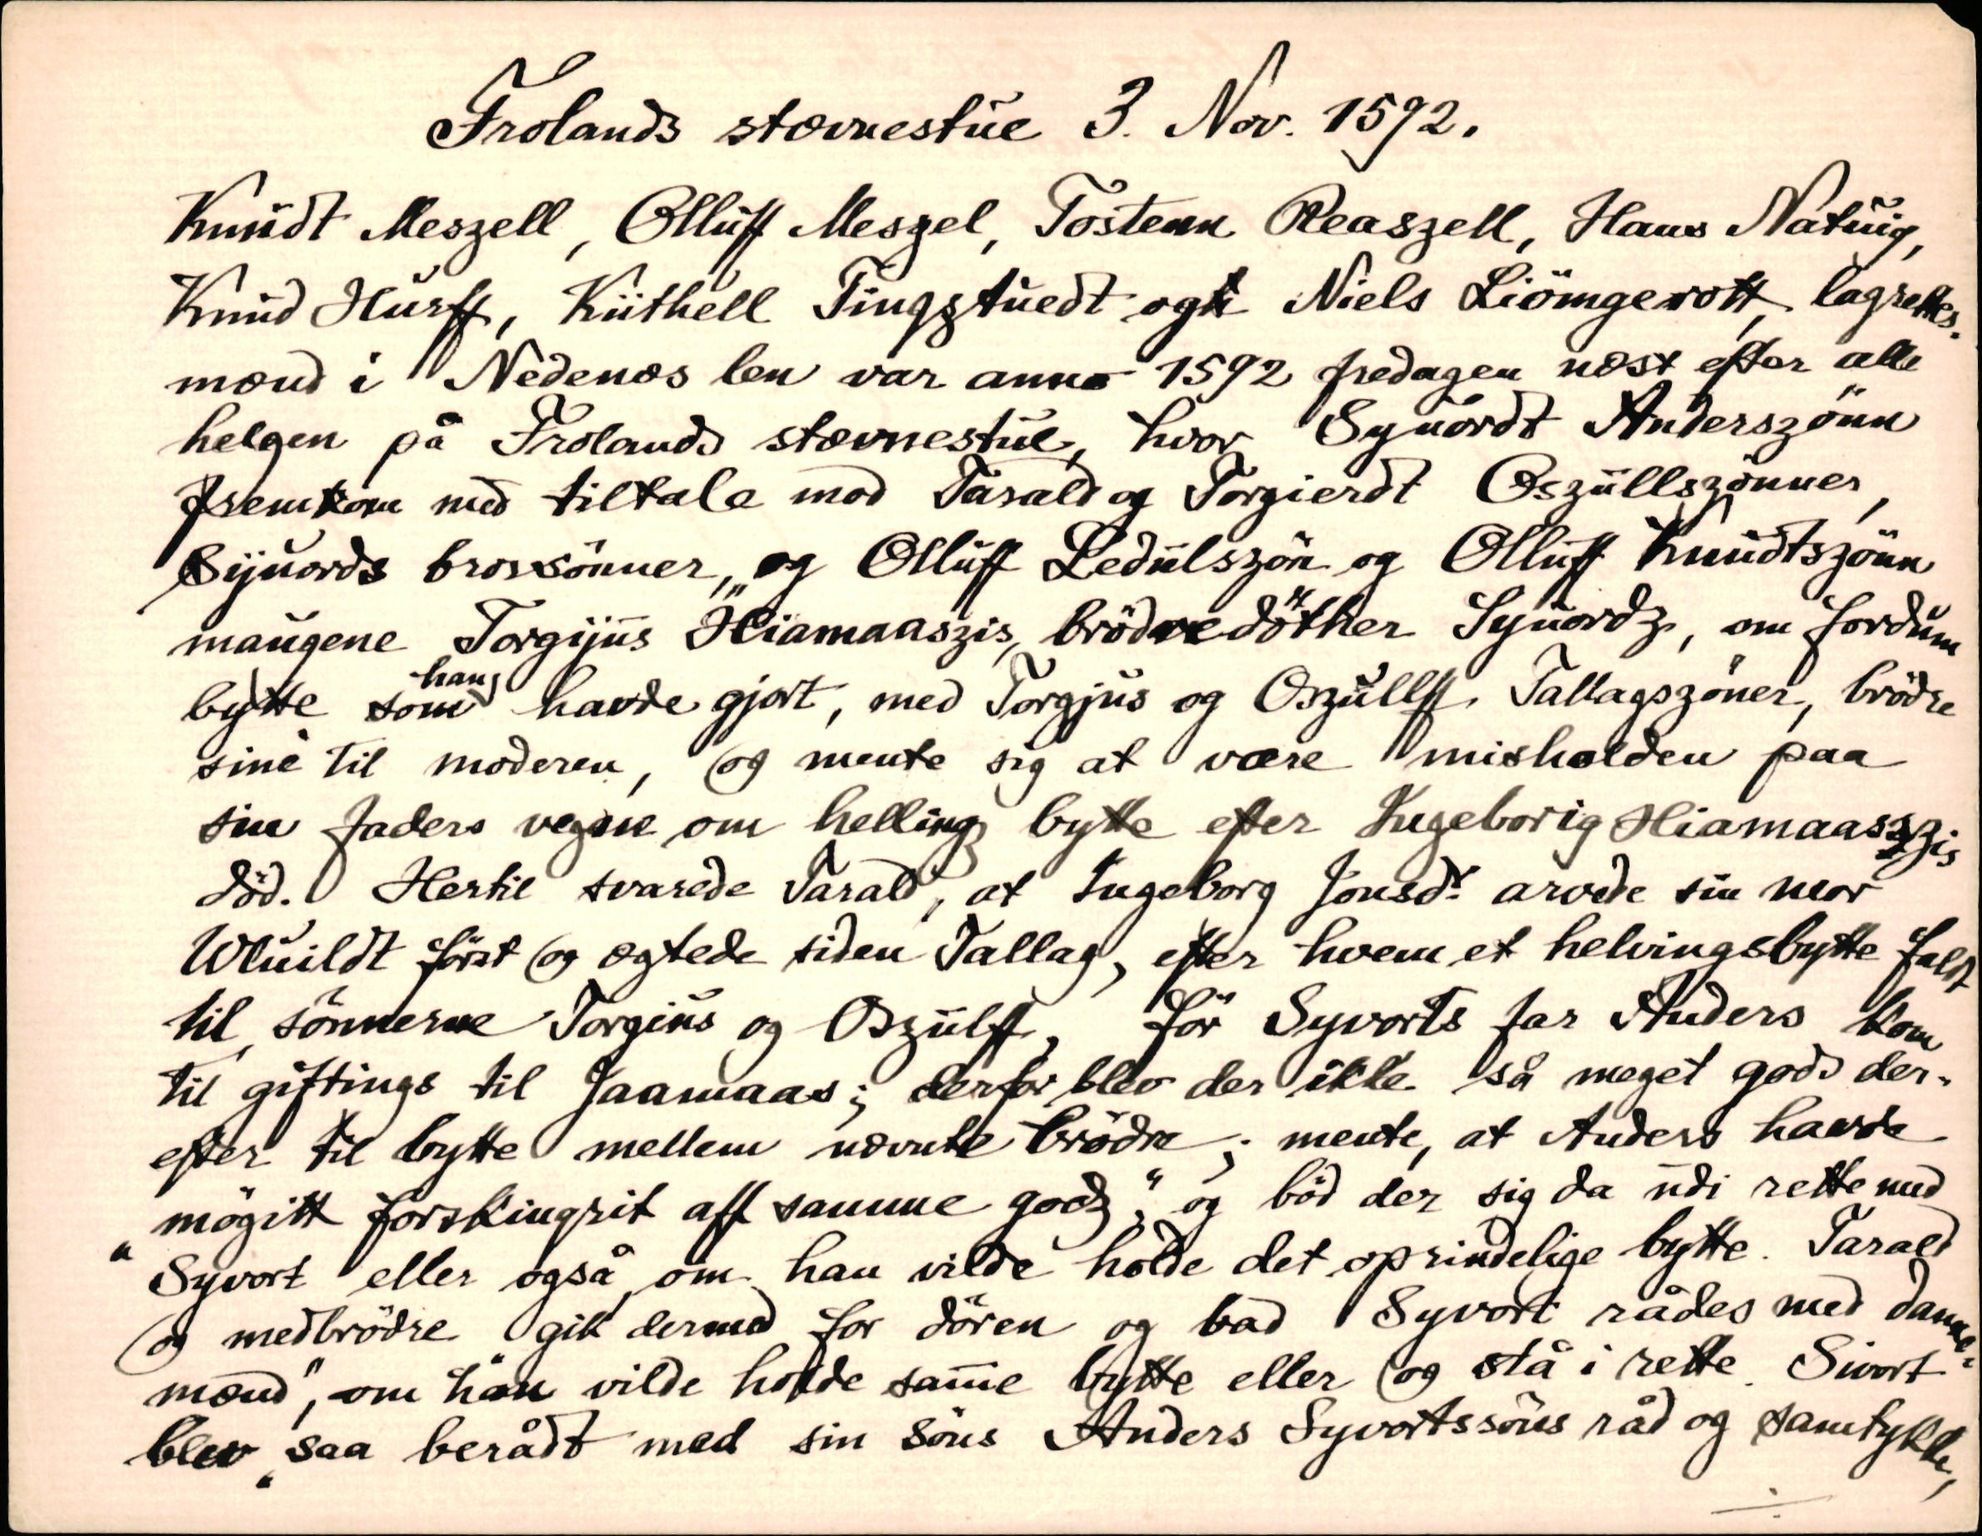 Frolands stævnestue 3. Nov. 1592.
Knudt Meszell, Olluff Meszel, Tostenn Reaszell, Hans Natuig,
Knud Hurff, Kiithell Tingztuedt ogh Niels Liömgerott, lagrettes-
mænd i Nedenæs len var anno 1592 fredagen næst efter alle
helgen på Frolands stævnestue, hvor Syuordt Anderszönn
fremkom med tiltale mod Tarald og Torgierdt Oszullszönner,
Syuords brorsönner, og Olluff Ledulszön og Olluff Knudtszönn
"maugene Torgijus Hiamaaszis, brödredöther Syuordz", om fordum
bytte som han havde gjort, med Torgjus og Oszullff Tallagszöner, brödre
sine til moderen, og mente sig at være misholden paa
sin faders vegne om helling bytte efter Ingeborig Hiamaaszis
död. Hertil svarede Tarald, at Ingeborg Jonsdr arvede sin mor
Wluildt först og ægtede siden Tallag, efter hvem et helvingsbytte faldt
til sönnerne Torgius og Oszulff, för Syvorts far Anders kom
til giftings til Jaamaas; derfor blev der ikke så meget gods der-
efter til bytte mellem nævnte brödre; mente, at Anders havde
"mögitt forskingrit aff samme godz", og böd der sig da udi rette med
Syvort eller også om han vilde holde det oprindelige bytte. Tarald
og medbrödre gik dermed for dören og bad Syvort "rådes med danne-
mænd", om han vilde holde samme bytte eller og stå i rette. Sivort
blev "saa berådt med sin söns Anders Syvortssöns råd og samtykke,